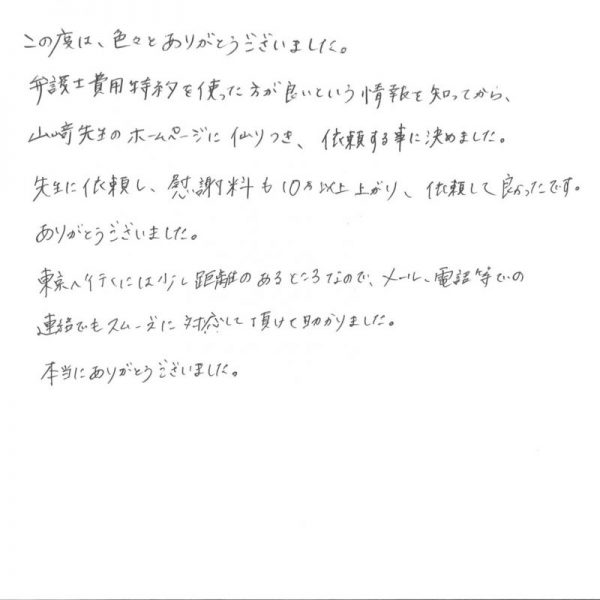 この度は、色々とありがとうございました。
弁護士費用特約を使った方が良いという情報を知ってから、
山﨑先生のホームページに辿りつき、依頼する事に決めました。
先生に依頼し、慰謝料も10万以上上がり、依頼して良かったです。
ありがとうございました。
東京へ行くには少し距離のあるところなので、メール、電話等での
連絡でもスムーズに対応して頂けて助かりました。
本当にありがとうございました。